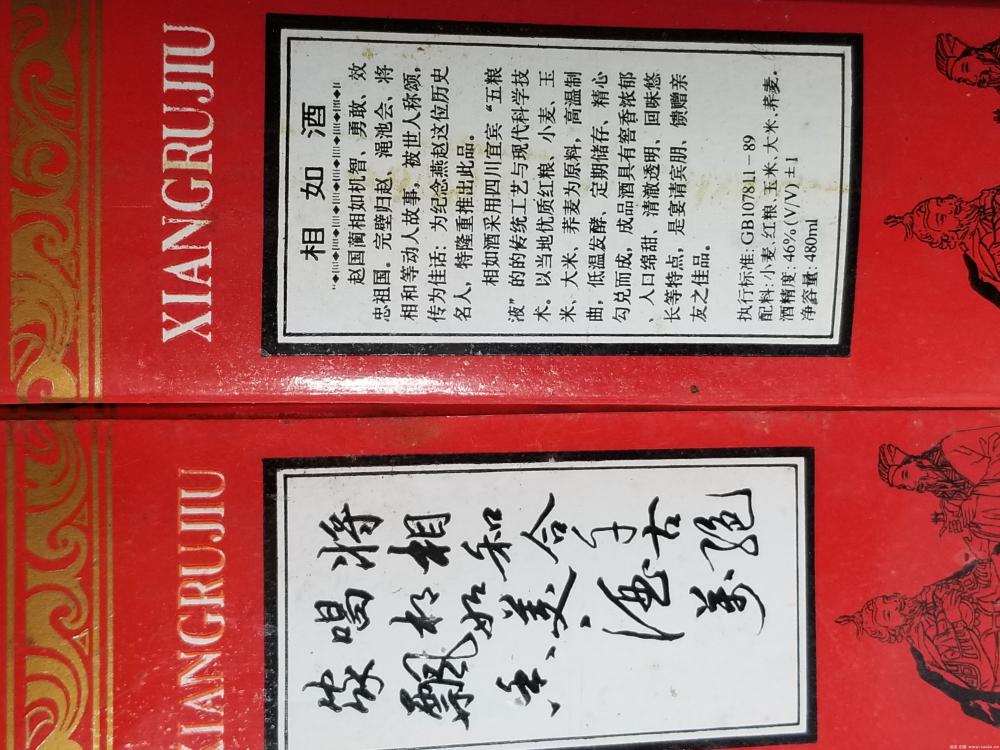 XIANGRUJIU
相如酒
赵国蔺相如机智、勇敢、效
忠祖国。完壁归赵、渑池会、将
相和等动人故事，被世人称颂，
传为佳话：为纪念燕赵这位历史
名人，特隆重推出此品。
相如酒采用四川宜宾“五粮
液”的的传统工艺与现代科学技
术。以当地优质红粮、小麦、玉
米、大米、荞麦为原料，高温制
曲，低温发酵、定期储存、精心
勾兑而成，成品酒具有窖香浓郁
、入口绵甜、清澈透明、回味悠
长等特点，是宴请宾朋、馈赠亲
友之佳品。
执行标准:GB107811-89
配料:小麦、红粮、玉米、大米、荞麦。
酒精度:46%(V/V)±1
净容量:480ml
XIANGRUJIU
将相和合千古绝
唱相如美酒万
家飘香